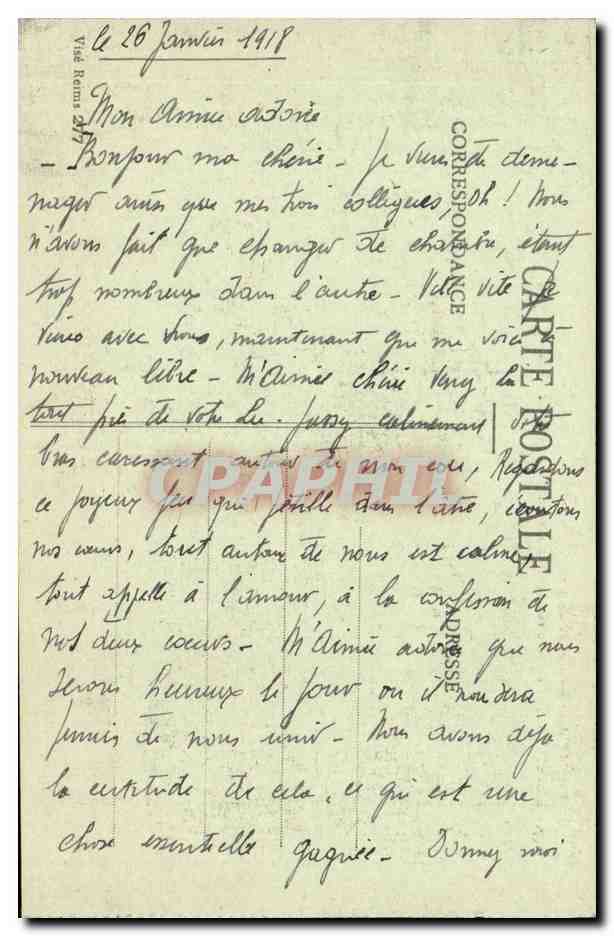 le 26 Janvier 1918
Mon Aimée adorée
- Bonjour ma chérie - Je viens de demé-
nager ainsi que mes trois collègues, Oh! Nous
n'avons fait que changer de chambre, étant
trop nombreux dans l'autre - Vite vite je
viens avec vous, maintenant que me voici
nouveau libre - M'Aimée chérie Venez là
tout près de votre Lu. Passez calinement votre
bras caressant autour de mon cou, Regardons
ce joyeux feu qui pétille dans l'atre, écoutons
nos cœurs, tout autour de nous est calme,
tout appelle à l'amour, à la confession de
nos deux cœurs - M'Aimée adorée que nous
serons heureux le jour où il nous sera
permis de nous unir - Nous avons déjà
la certitude de cela, ce qui est une
chose essentielle gagnée - Donnez moi
Visé Reims 277
CORRESPONDANCE
CARTE POSTALE
ADRESSE
CPAPHIL